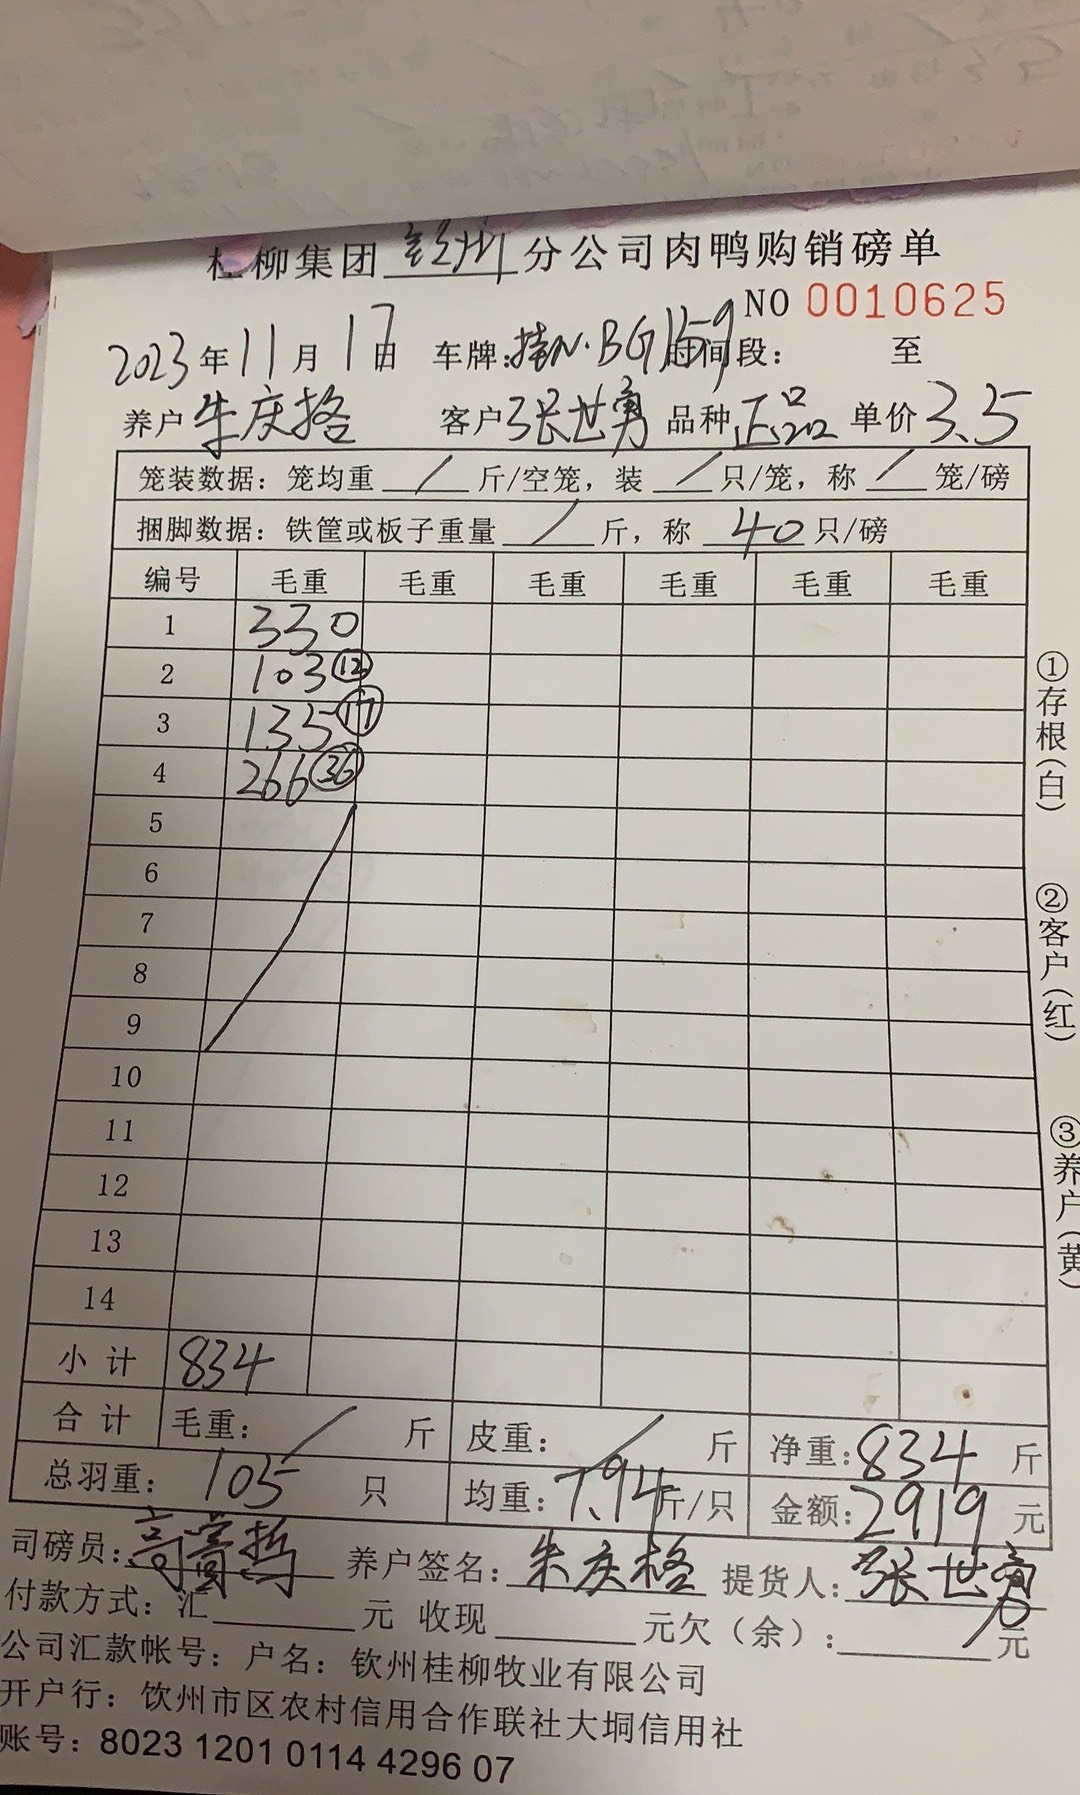 桂柳集团钦州分公司肉鸭购销磅单
NO 0010625
2023年11月17日 车牌:桂N·BG1159时间段: 至
养户朱庆格 客户张世勇 品种正品 单价3.5
笼装数据：笼均重 / 斤/空笼，装 / 只/笼，称 / 笼/磅
捆脚数据：铁筐或板子重量 / 斤，称 40 只/磅
编号 毛重 毛重 毛重 毛重 毛重 毛重
1 330
2 103 ⑫
3 135 ⑰
4 266 ㊱
5
6
7
8
9
10
11
12
13
14
小计 834
合计 毛重: / 斤 皮重: / 斤 净重:834 斤
总羽重: 105 只 均重:7.94斤/只 金额:2919 元
司磅员: 养户签名:朱庆格 提货人:张世勇
付款方式：汇 元 收现 元欠（余）: 元
公司汇款帐号：户名：钦州桂柳牧业有限公司
开户行：钦州市区农村信用合作联社大垌信用社
账号：8023 1201 0114 4296 07
①存根(白)
②客户(红)
③养户(黄